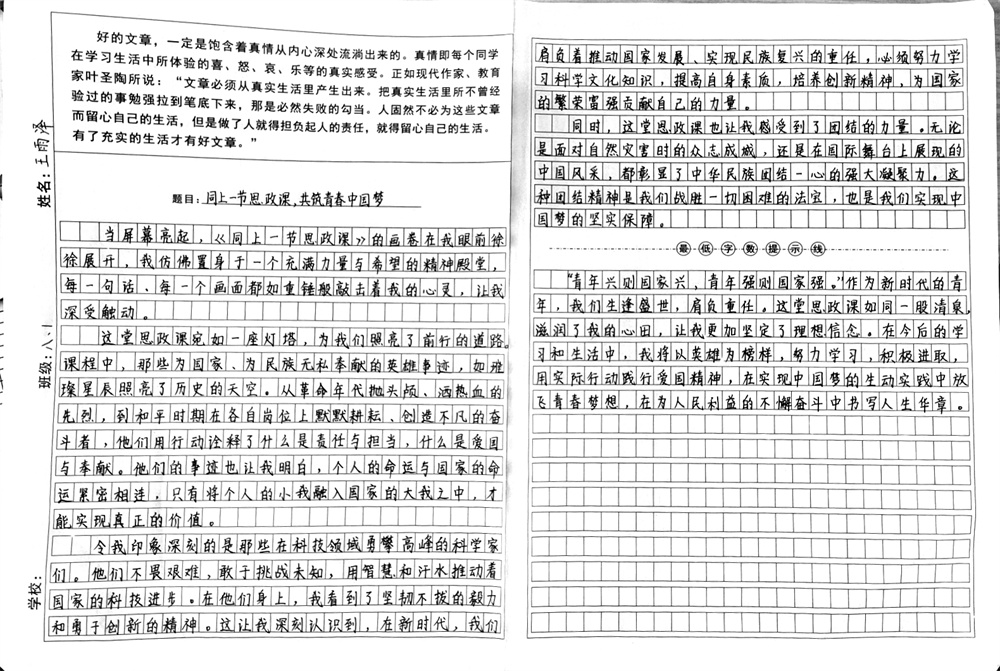 好的文章，一定是饱含着真情从内心深处流淌出来的。真情即每个同学
在学习生活中所体验的喜、怒、哀、乐等的真实感受。正如现代作家、教育
家叶圣陶所说：“文章必须从真实生活里产生出来。把真实生活里所不曾经
验过的事勉强拉到笔底下来，那是必然失败的勾当。人固然不必为这些文章
而留心自己的生活，但是做了人就得担负起人的责任，就得留心自己的生活。
有了充实的生活才有好文章。”
姓名：王雨泽
班级：八.1
学校：
题目：同上一节思政课，共筑青春中国梦
当屏幕亮起，《同上一节思政课》的画卷在我眼前徐
徐展开，我仿佛置身于一个充满力量与希望的精神殿堂，
每一句话、每一个画面都如重锤般敲击着我的心灵，让我
深受触动。
这堂思政课宛如一座灯塔，为我们照亮了前行的道路。
课程中，那些为国家、为民族无私奉献的英雄事迹，如璀
璨星辰照亮了历史的天空。从革命年代抛头颅、洒热血的
先烈，到和平时期在各自岗位上默默耕耘、创造不凡的奋
斗者，他们用行动诠释了什么是责任与担当，什么是爱国
与奉献。他们的事迹也让我明白，个人的命运与国家的命
运紧密相连，只有将个人的小我融入国家的大我之中，才
能实现真正的价值。
令我印象深刻的是那些在科技领域勇攀高峰的科学家
们。他们不畏艰难，敢于挑战未知，用智慧和汗水推动着
国家的科技进步。在他们身上，我看到了坚韧不拔的毅力
和勇于创新的精神。这让我深刻认识到，在新时代，我们
肩负着推动国家发展、实现民族复兴的重任，必须努力学
习科学文化知识，提高自身素质，培养创新精神，为国家
的繁荣富强贡献自己的力量。
同时，这堂思政课也让我感受到了团结的力量。无论
是面对自然灾害时的众志成城，还是在国际舞台上展现的
中国风采，都彰显了中华民族团结一心的强大凝聚力。这
种团结精神是我们战胜一切困难的法宝，也是我们实现中
国梦的坚实保障。
最低字数提示线
“青年兴则国家兴，青年强则国家强。”作为新时代的青
年，我们生逢盛世，肩负重任。这堂思政课如同一股清泉，
滋润了我的心田，让我更加坚定了理想信念。在今后的学
习和生活中，我将以英雄为榜样，努力学习，积极进取，
用实际行动践行爱国精神，在实现中国梦的生动实践中放
飞青春梦想，在为人民利益的不懈奋斗中书写人生华章。